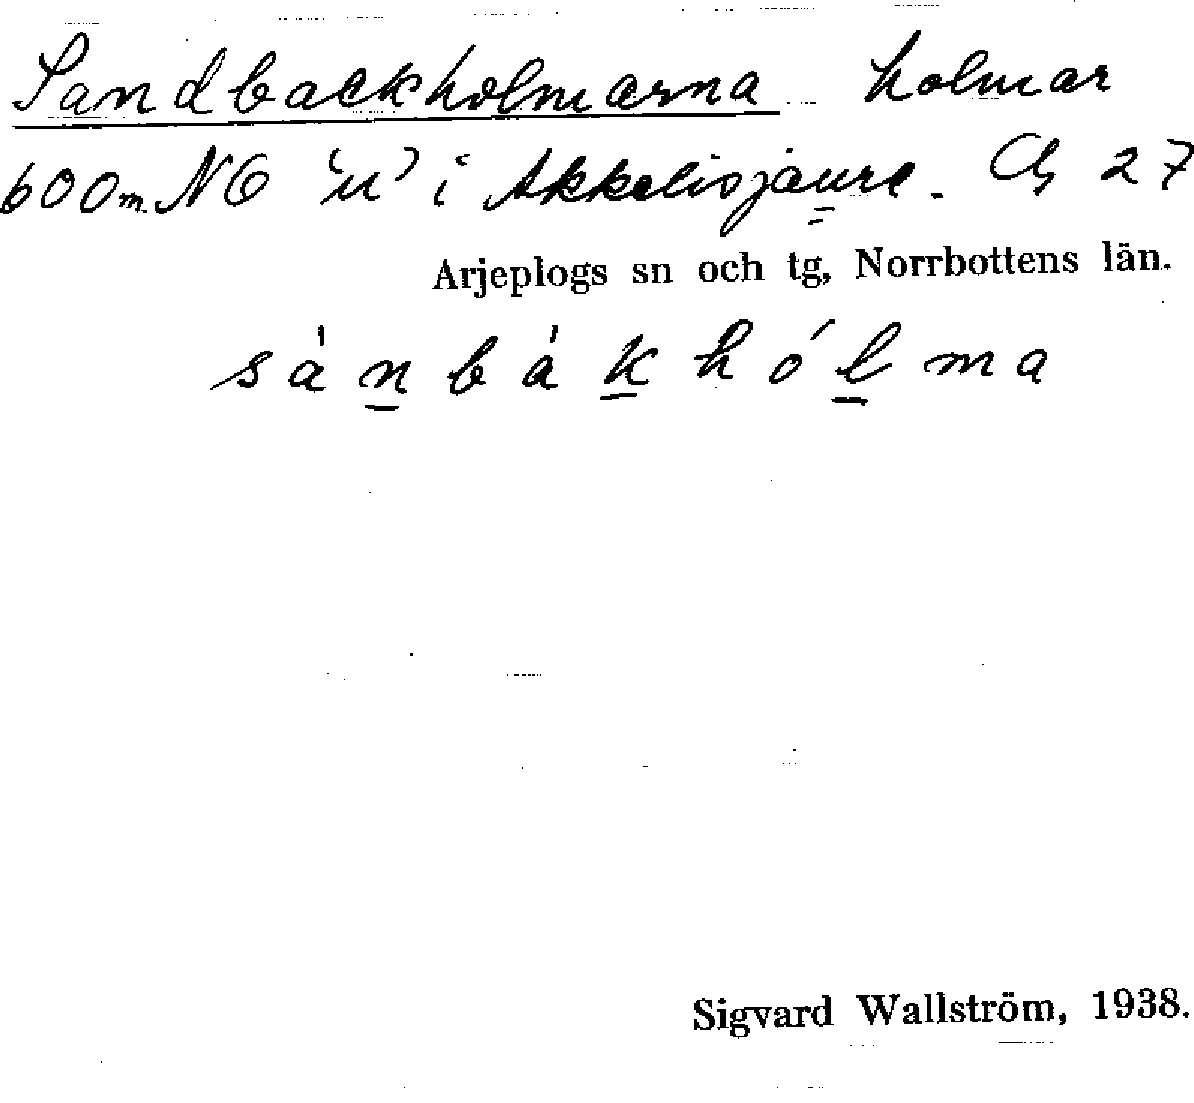 Sandbackholmarna holmar
600 m. NO 'u' i Akkelisjaure. 27
Arjeplogs sn och tg, Norrbottens län.
s á n b á k h ó l m a
Sigvard Wallström, 1938.